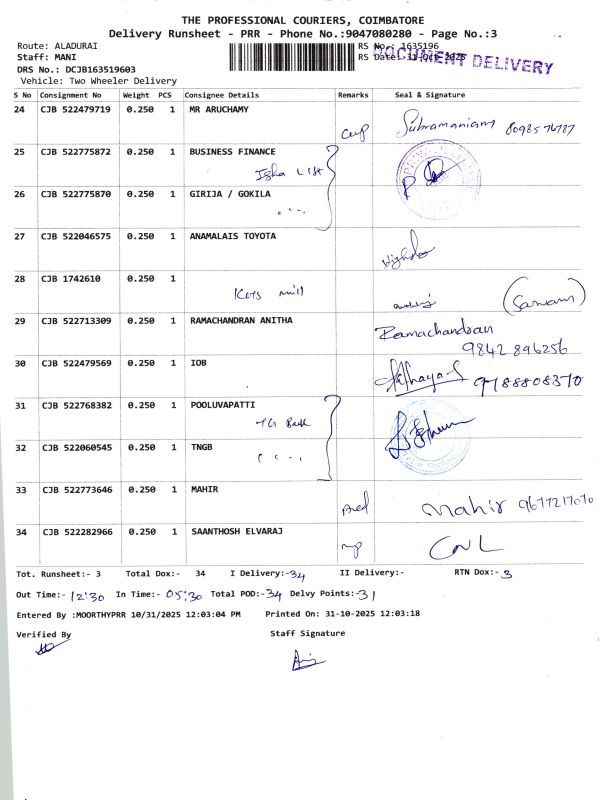 THE PROFESSIONAL COURIERS, COIMBATORE
Delivery Runsheet - PRR - Phone No.:9047080280 - Page No.:3
Route: ALADURAI RS No.: 1635196
Staff: MANI RS Date: 31-Oct-2025
DOCUMENT DELIVERY
DRS No.: DCJB163519603
Vehicle: Two Wheeler Delivery
S No Consignment No Weight PCS Consignee Details Remarks Seal & Signature
24 CJB 522479719 0.250 1 MR ARUCHAMY
Subramaniam 8098576787
25 CJB 522775872 0.250 1 BUSINESS FINANCE
26 CJB 522775870 0.250 1 GIRIJA / GOKILA
27 CJB 522046575 0.250 1 ANAMALAIS TOYOTA
28 CJB 1742610 0.250 1
mill
29 CJB 522713309 0.250 1 RAMACHANDRAN ANITHA
Ramachandran
9842 896256
30 CJB 522479569 0.250 1 IOB
9788808370
31 CJB 522768382 0.250 1 POOLUVAPATTI
32 CJB 522060545 0.250 1 TNGB
33 CJB 522773646 0.250 1 MAHIR
Mahir 9677217070
34 CJB 522282966 0.250 1 SAANTHOSH ELVARAJ
Tot. Runsheet:- 3 Total Dox:- 34 I Delivery:-34 II Delivery:- RTN Dox:- 3
Out Time:- 12:30 In Time:- 05:30 Total POD:-34 Delvy Points:-31
Entered By :MOORTHYPRR 10/31/2025 12:03:04 PM Printed On: 31-10-2025 12:03:18
Verified By Staff Signature